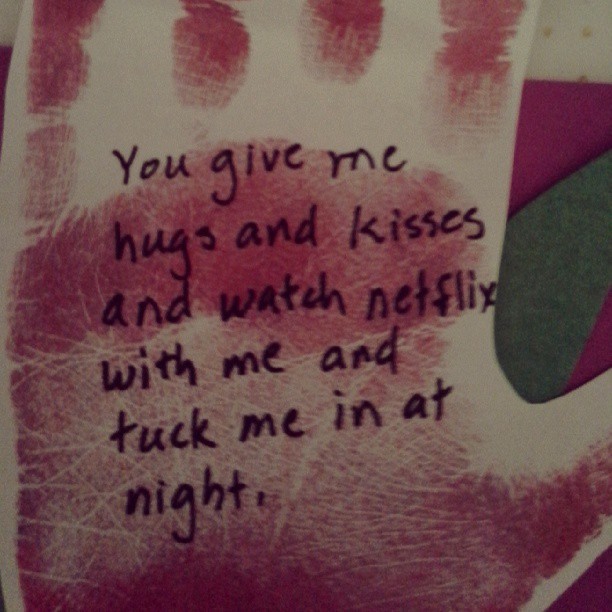 You give me
hugs and kisses
and watch netflix
with me and
tuck me in at
night.